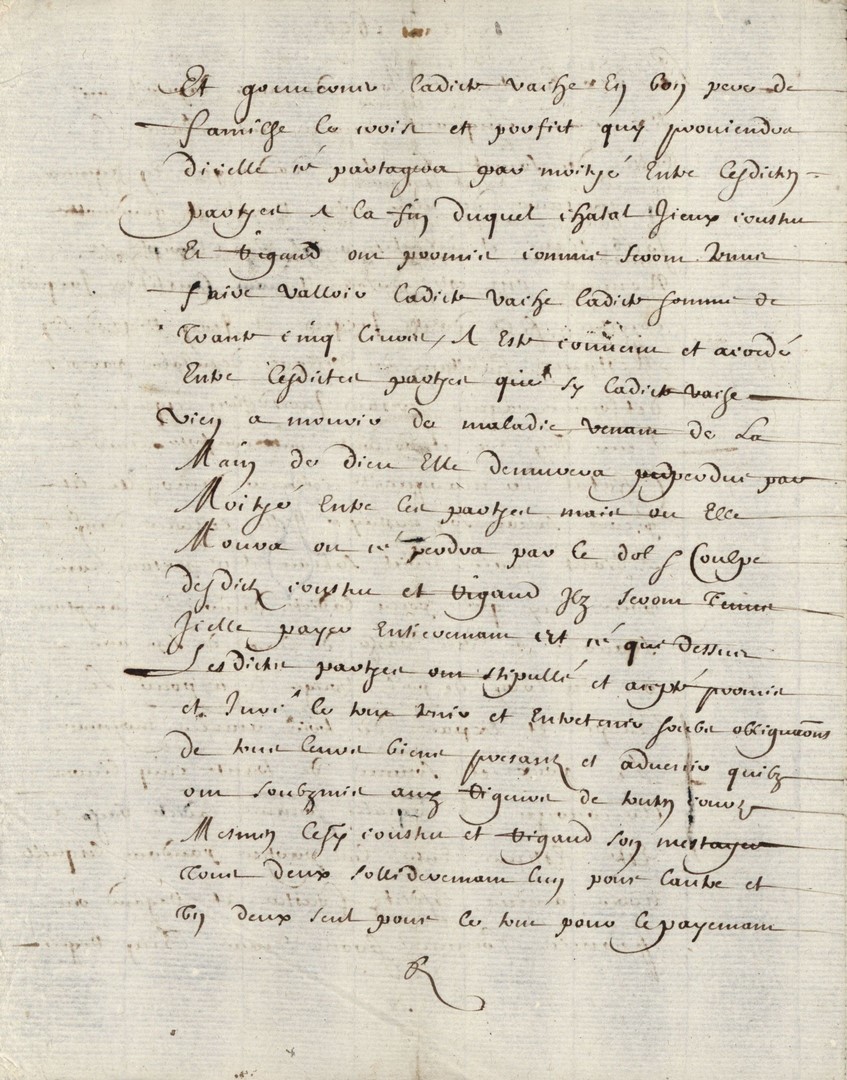 Et gouverner ladicte vache En bon pere de
famille le crois et proffict quy proviendra
dicelle ce partagera par moityé Entre lesdictes
partyes A la fin duquel chatal Iceux coushu
Et Vigand ont promis comme seront tenus
faire valloir ladicte vache ladicte somme de
trante cinq livres, A Este convenu et acordé
Entre lesdictes partyes que sy ladicte vache
vien a mourir de maladie venant de La
Main de dieu Elle demurera perdue par
Moityé Entre les partyes mais ou Elle
Moura ou ce perdra par le dol & Coulpe
desdictz coushu et Vigand Ilz seront Tenus
Icelle payer Entierement Et ce que dessus
Lesdictes partyes ont stipullé et acepté promis
et Juré le tout tenir et Entretenir soubz obligations
de tous leurs biens presantz et advenir quilz
ont soubzmis aux Rigeurs de toutes courtz
Mesmes lesdictz coushu et Vigand son mestayer
Tous deux sollidairement lun pour lautre et
Un deux seul pour le tout pour le payemant